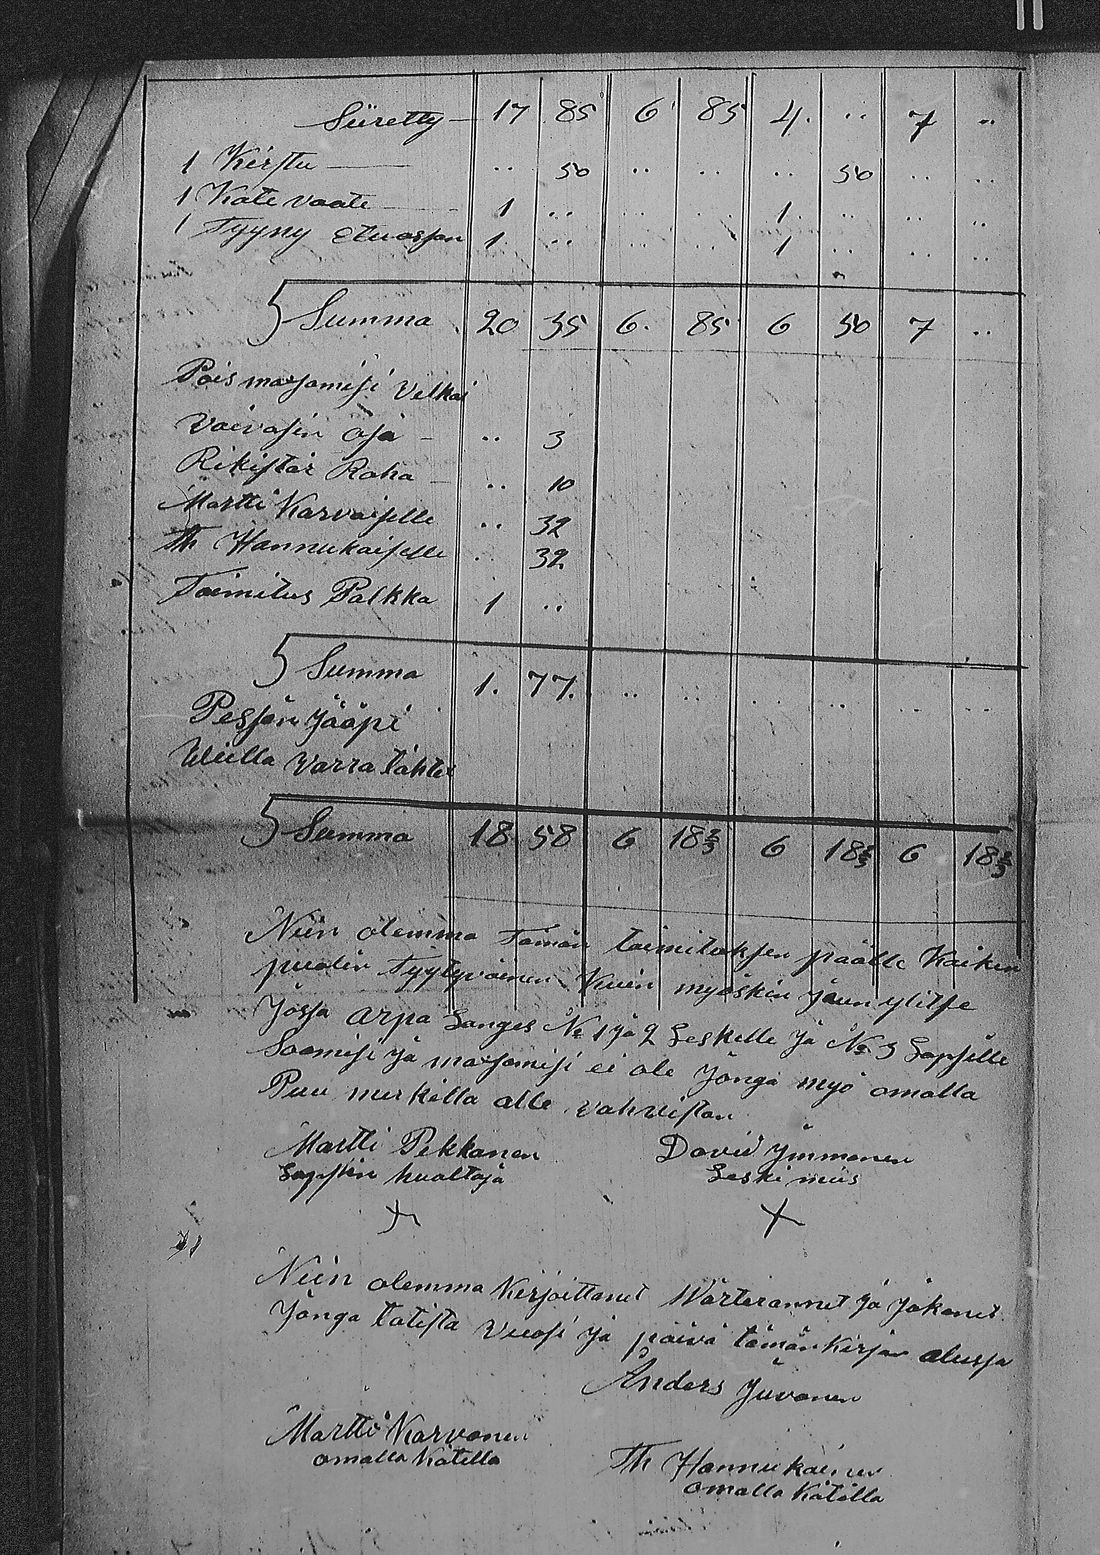 Siiretty — 17 85 6 85 4 .. 7 ..
1 Kirstu — .. 50 .. .. .. 50 .. ..
1 Kate vaate — 1 .. .. .. 1 .. .. ..
1 Tyyny etuossan 1 .. .. .. 1 .. .. ..
Summa 20 35 6 85 6 50 7 ..
Pois maxamisi Velkai
Vaivasin osa — .. 3
Rikistär Raha — .. 10
Martti Karvaiselle .. 32
Th Hannukaiselle . 32
Toimitus Palkka 1 ..
Summa 1. 77. .. .. .. .. .. ..
Pessän Jääpi
Wiella Varra tähte
Summa 18 58 6 18⅔ 6 18⅔ 6 18⅔
Niin olemma Tämän toimituksen päälle Kaiken
puolin Tyytyväinen Kuin myöskin jaun ylitse
Jossa arpa Langes № 1 ja 2 Leskelle Ja № 3 Lapsille
Saamisi ja maxamisi ei ole Jonga myö omalla
Puu merkillä alle vahvistan
Martti Pekkanen David Immonen
Lapsein huoltaja Leski mies
Niin olemma Kirjoittanet Wärterannet Ja Jakanet
Jonga totista Vuosi ja päivä tämän Kirjan alussa
Anders Juvonen
Martti Karvonen
omalla Kätellä
Th Hannukainen
omalla Kätellä